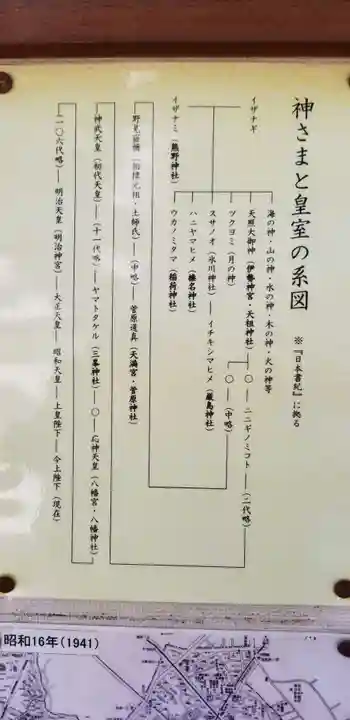 神さまと皇室の系図 ※『日本書紀』に拠る
イザナギ
イザナミ（熊野神社）
海の神・山の神・水の神・木の神・火の神等
天照大御神（伊勢神宮・天祖神社）
〇 ニニギノミコト （二代略）
〇 （中略）
ツクヨミ（月の神）
スサノオ（氷川神社） イチキシマヒメ（厳島神社）
ハニヤマヒメ（榛名神社）
ウカノミタマ（稲荷神社）
野見宿禰（相撲元祖・土師氏） （中略） 菅原道真（天満宮・菅原神社）
神武天皇（初代天皇） （十一代略） ヤマトタケル（三峯神社） 〇 応神天皇（八幡宮・八幡神社）
（一〇六代略） 明治天皇（明治神宮） 大正天皇 昭和天皇 上皇陛下 今上陛下（現在）
昭和16年（1941）